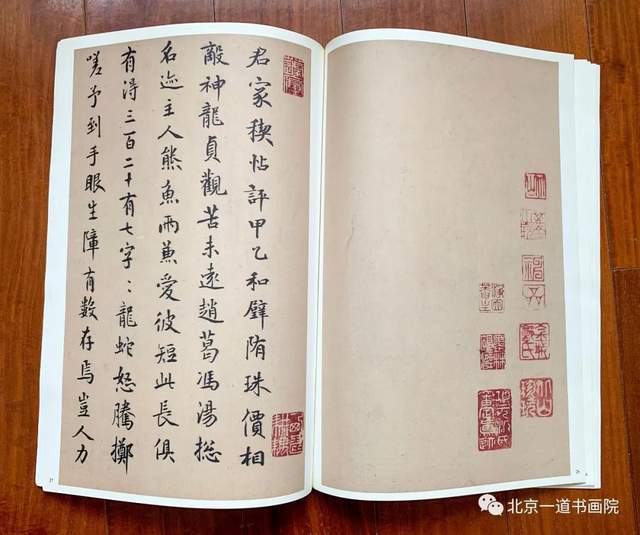 君家稧帖評甲乙和璧隋珠價相
敵神龍貞觀苦未遠趙葛馮湯捴
名迹主人熊魚兩兼愛彼短此長俱
有得三百二十有七字字龍蛇怒騰擲
嗟予到手眼生障有數存焉豈人力
北京一道书画院